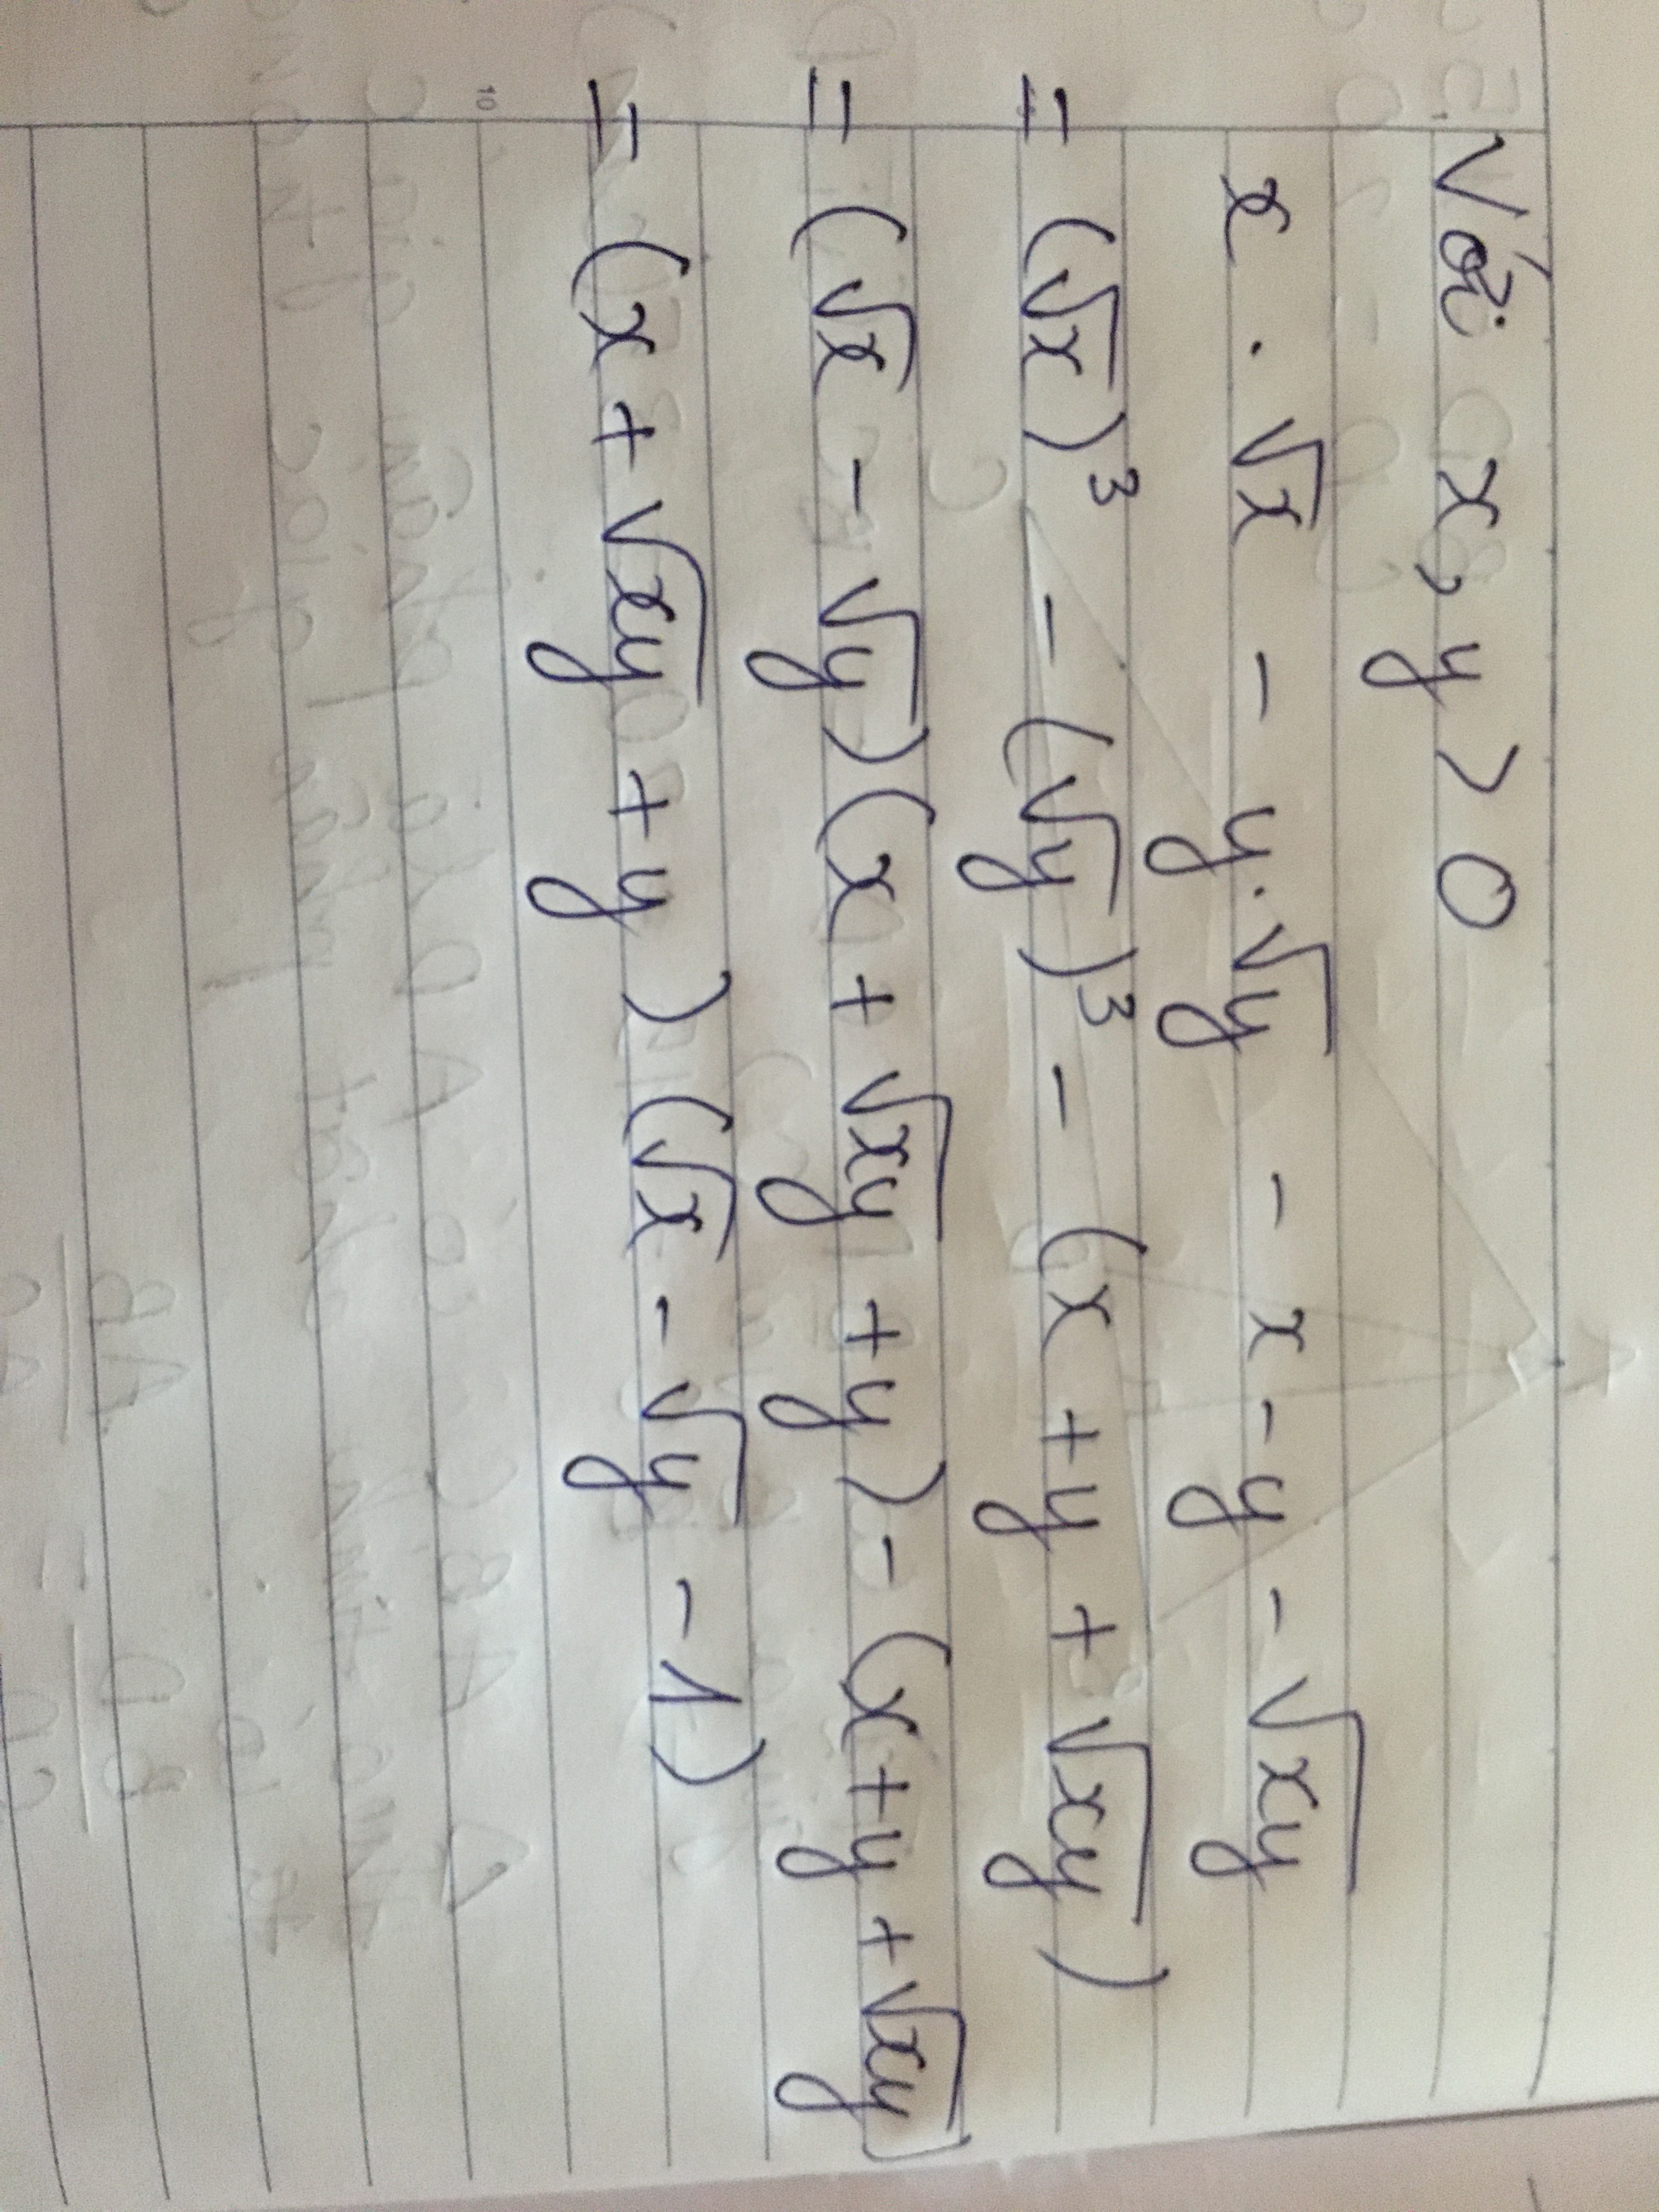 Với x, y > 0
x . √x - y . √y - x - y - √xy
= (√x)³ - (√y)³ - (x + y + √xy)
= (√x - √y)(x + √xy + y) - (x + y + √xy)
= (x + √xy + y)(√x - √y - 1)
10